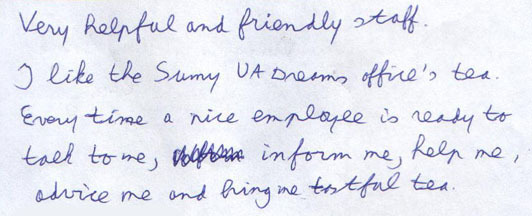 Very helpful and friendly staff.
I like the Sumy UA Dreams office's tea.
Every time a nice employee is ready to
talk to me, inform me, help me,
advice me and bring me tastful tea.